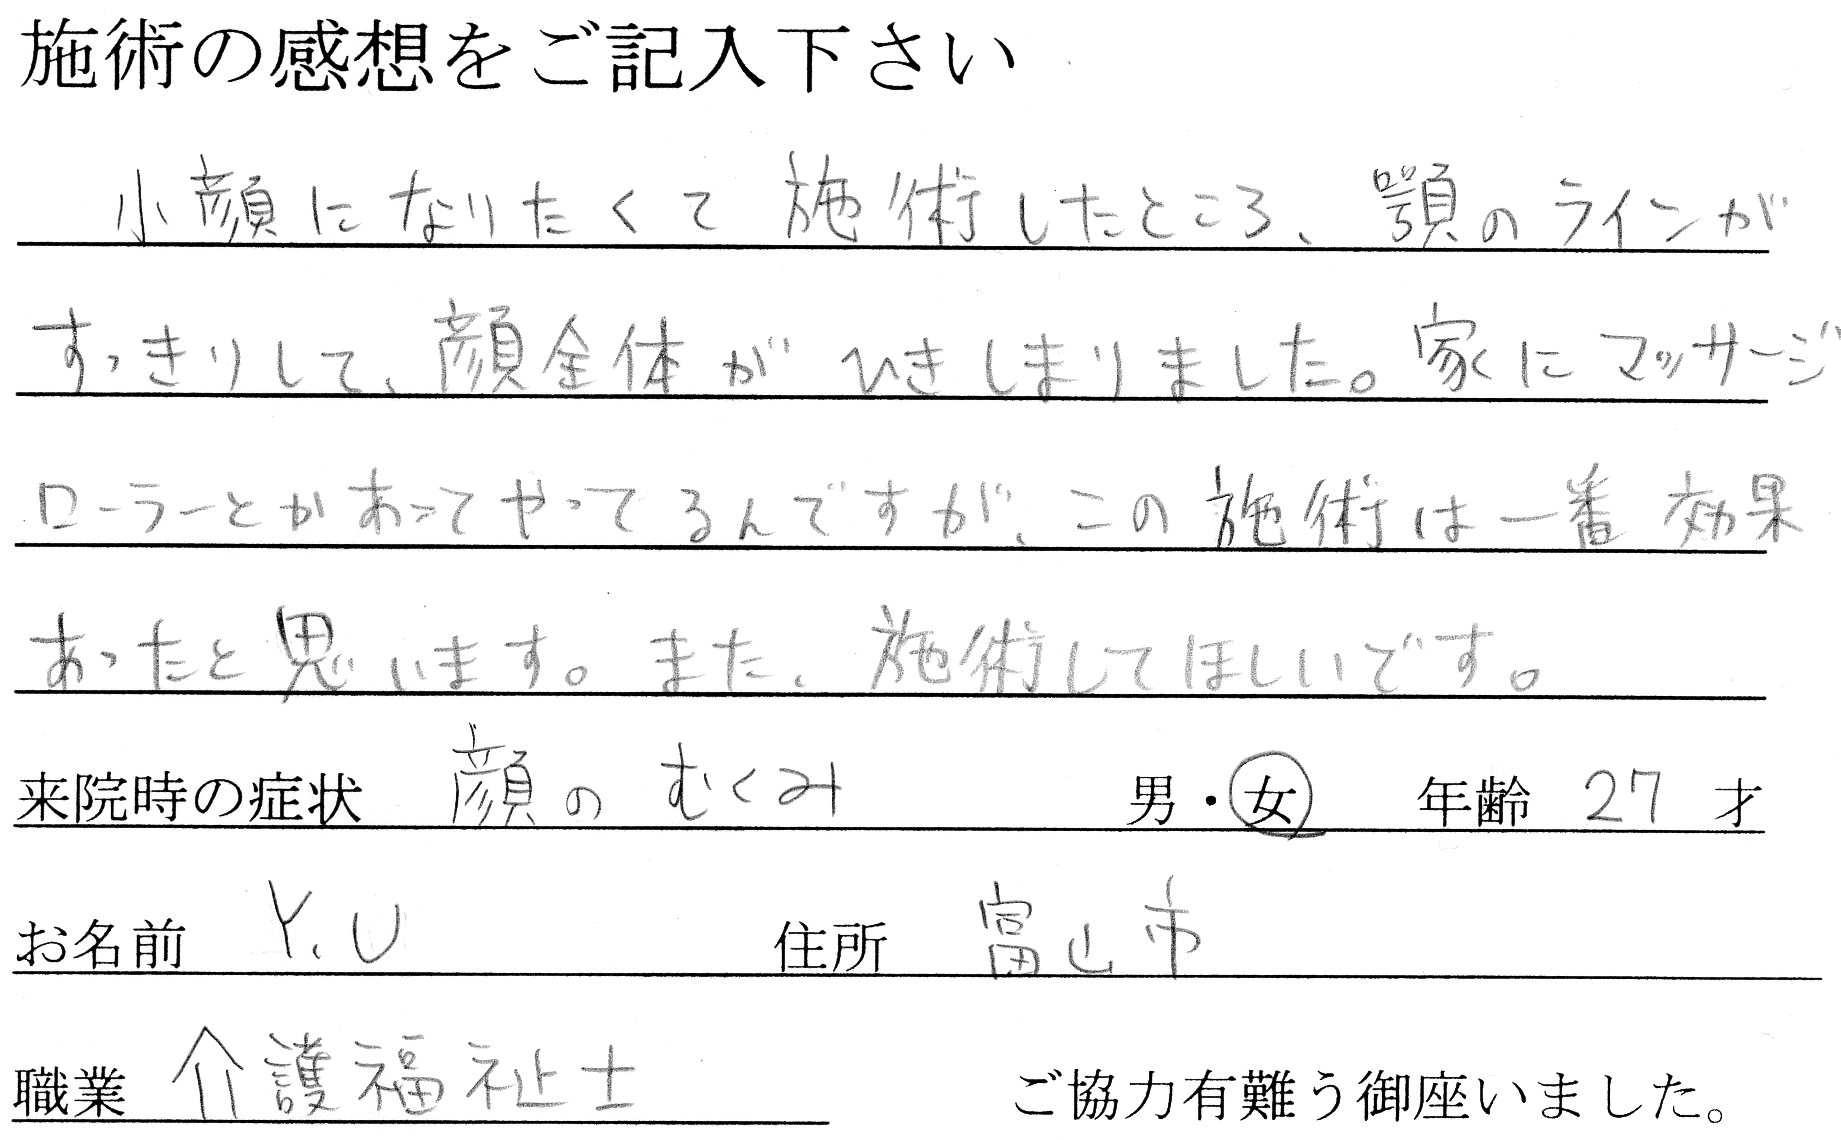 施術の感想をご記入下さい
小顔になりたくて施術したところ、顎のラインが
すっきりして、顔全体がひきしまりました。家にマッサージ
ローラーとかあってやってるんですが、この施術は一番効果
あったと思います。また、施術してほしいです。
来院時の症状 顔のむくみ 男・女 年齢 27 才
お名前 Y.U 住所 富山市
職業 介護福祉士 ご協力有難う御座いました。